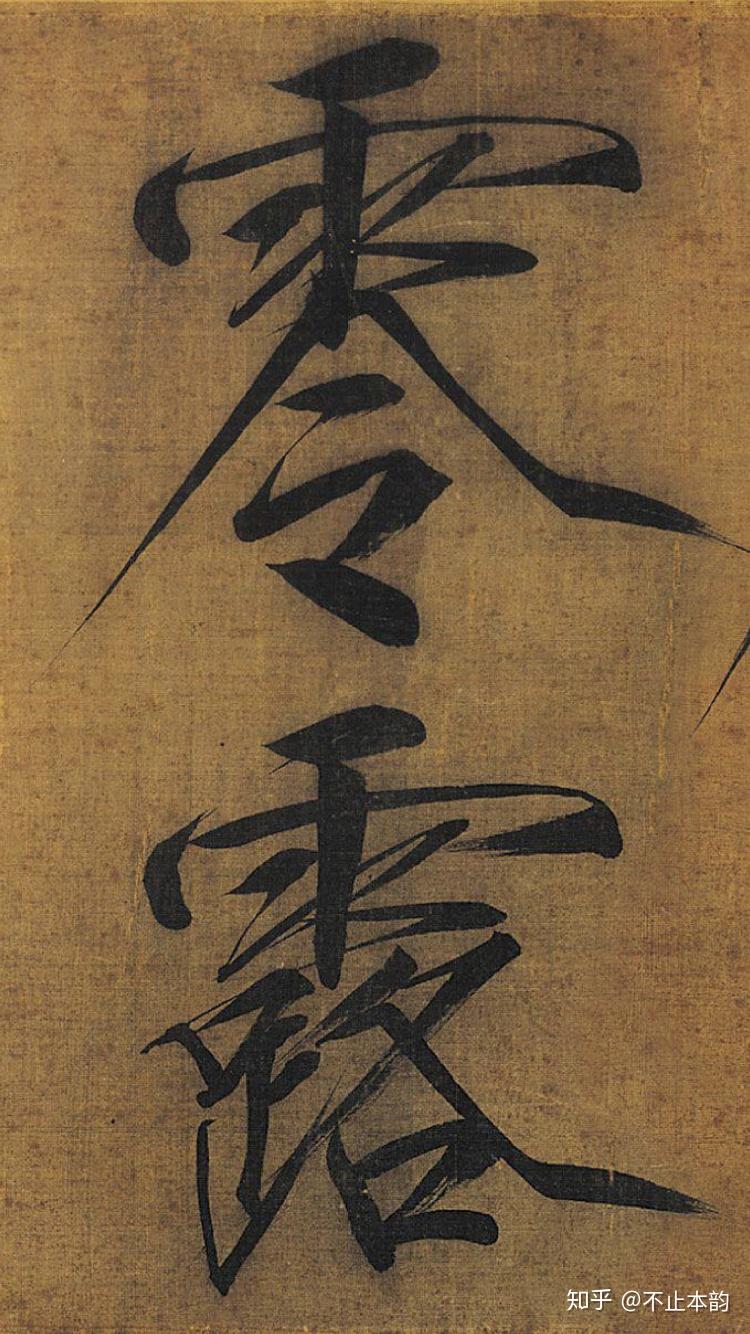 零露
知乎 @不止本韵